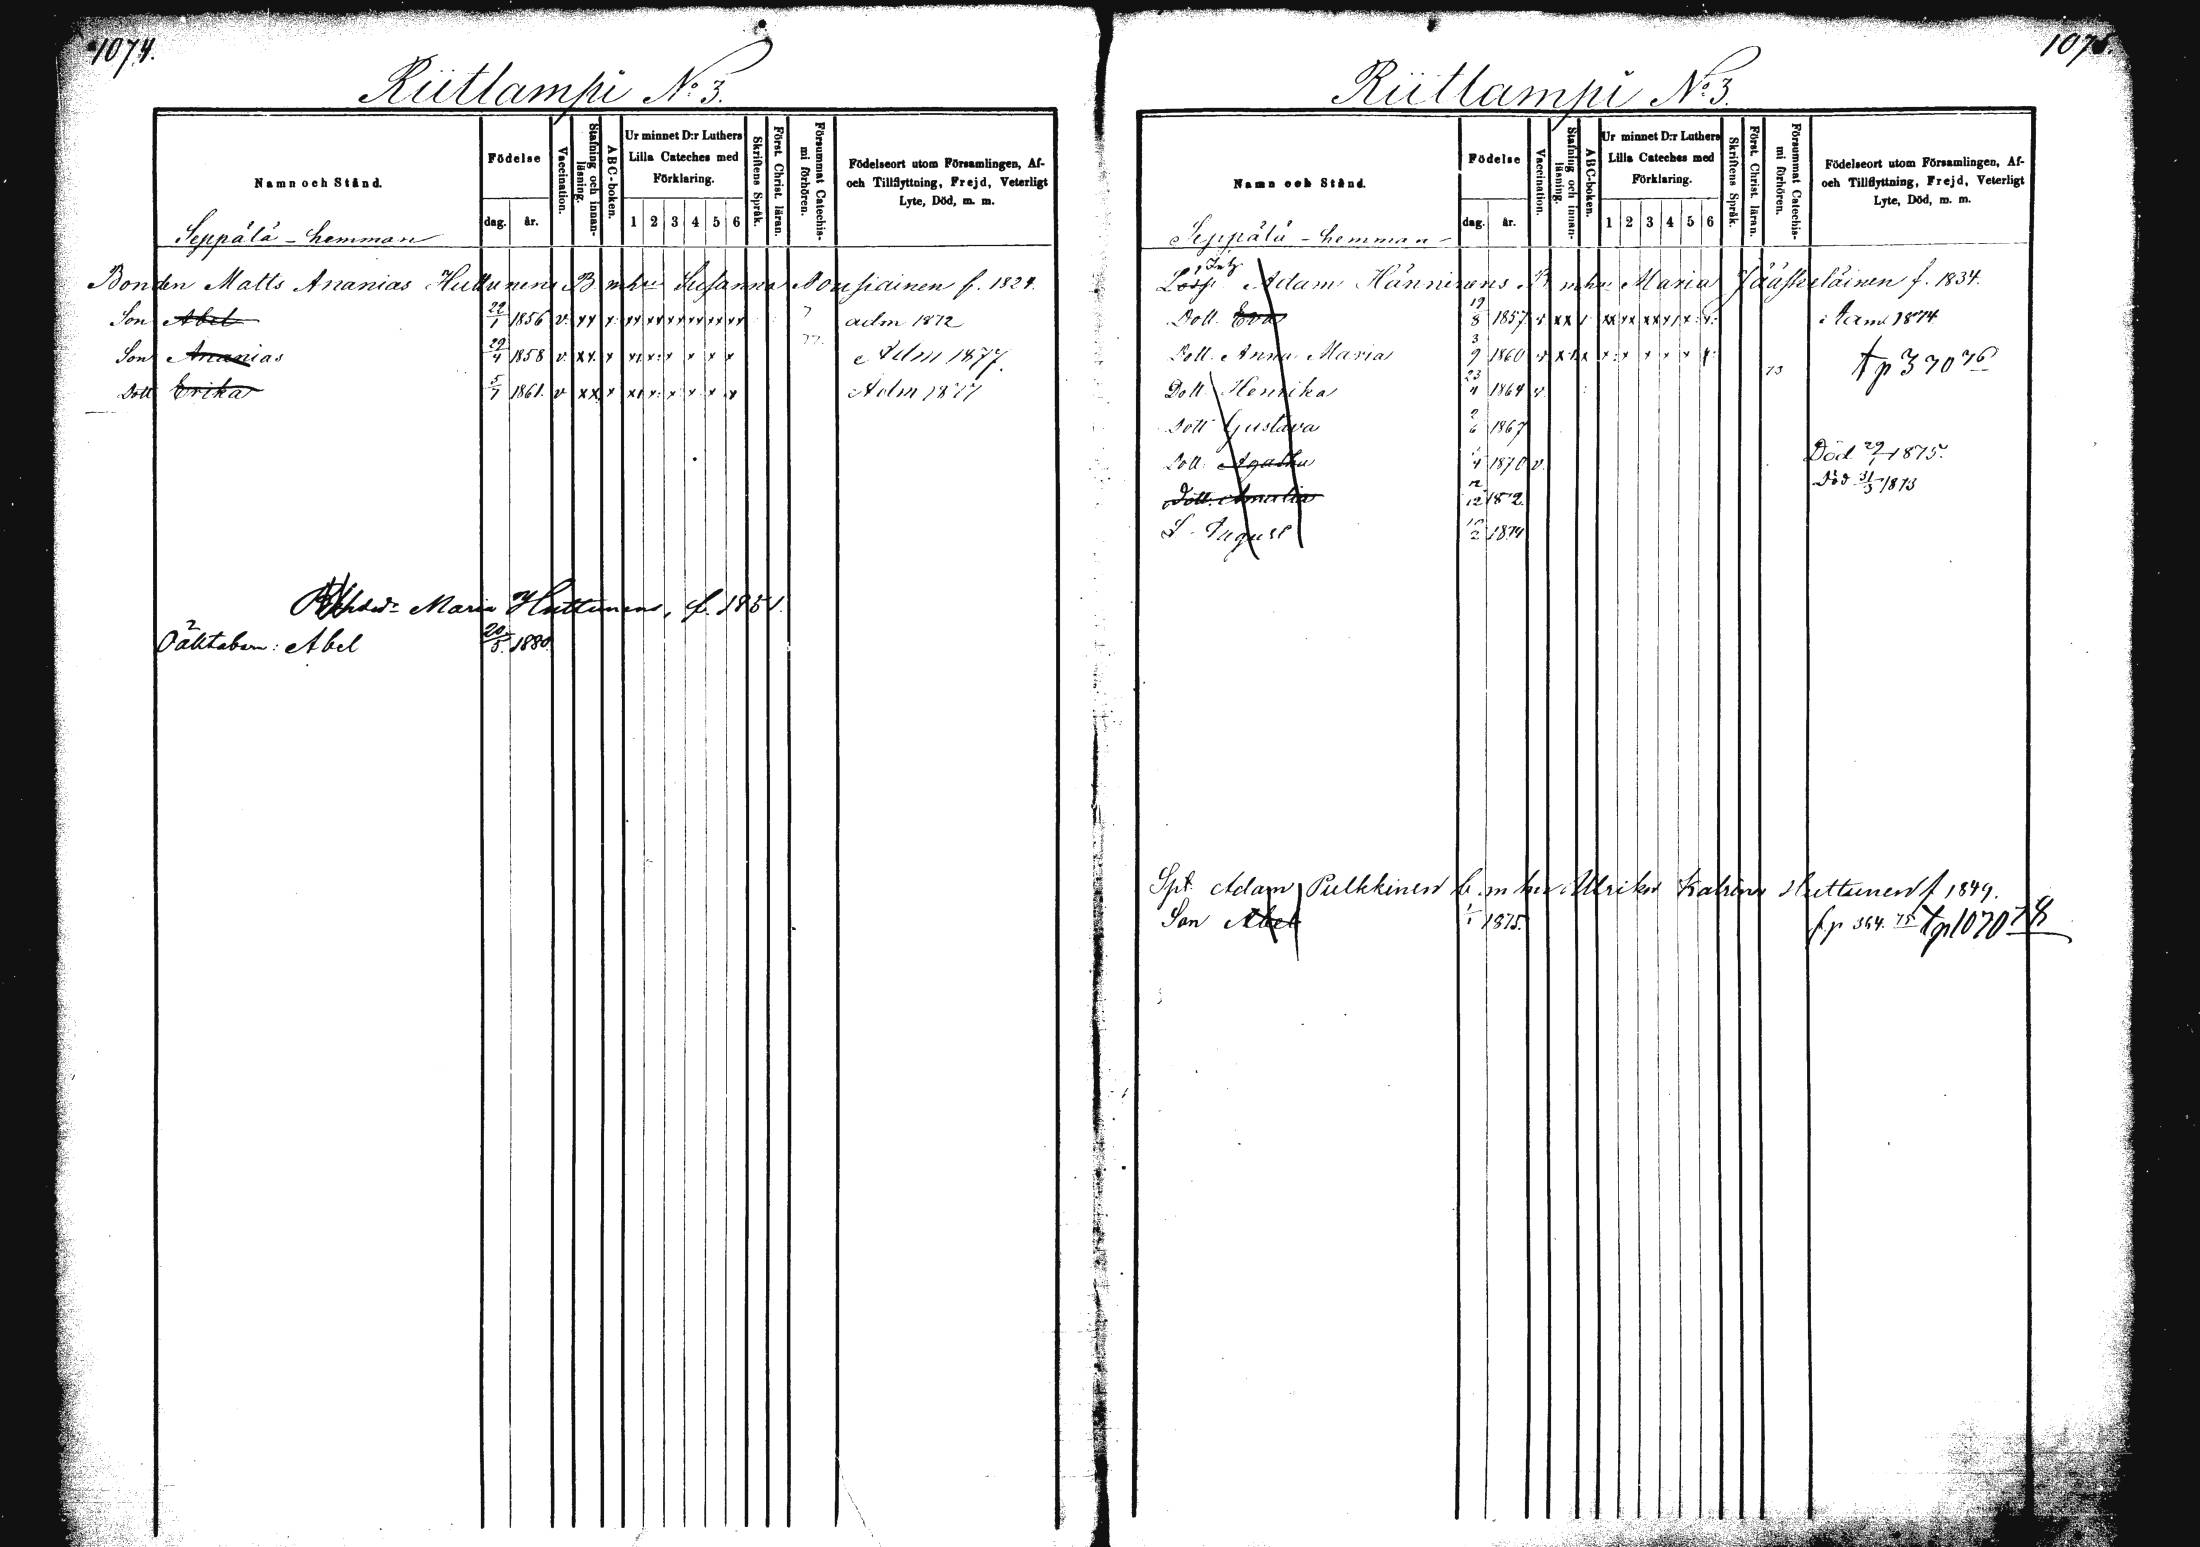 1074.
Riitlampi No 3.
Namn och Stånd.
Födelse
dag. år.
Vaccination.
Stafning och innanläsning.
ABC-boken.
Ur minnet D:r Luthers Lilla Cateches med Förklaring.
1 2 3 4 5 6
Skriftens Språk.
Först. Christ. läran.
Försummat Catechismi förhören.
Födelseort utom Församlingen, Af- och Tillflyttning, Frejd, Veterligt Lyte, Död, m. m.
Seppälä - hemman
Bonden Matts Ananias Huttunens B m hu Susanna Nousiainen f. 1824.
Son Abel 22/1 1856 v. xx x xx xx xx xx xx xx adm 1872
Son Ananias 29/4 1858 v. xx x xx x x x x x 77. Adm 1877.
Dott Erika 5/7 1861. v xx x xx x x x x x Adm 1877
Maria Huttunens, f. 1851.
Oäktabarn: Abel 20/5. 1880.
1075.
Riitlampi No 3.
Namn och Stånd.
Födelse
dag. år.
Vaccination.
Stafning och innanläsning.
ABC-boken.
Ur minnet D:r Luthers Lilla Cateches med Förklaring.
1 2 3 4 5 6
Skriftens Språk.
Först. Christ. läran.
Försummat Catechismi förhören.
Födelseort utom Församlingen, Af- och Tillflyttning, Frejd, Veterligt Lyte, Död, m. m.
Seppälä - hemman
Adam Hänninens B m hu Maria Jääskeläinen f. 1834.
Dott. Eva 19/8 1857 v xx x xx xx xx x x x 1874
Dott. Anna Maria 3/9 1860 v xx x x x x x x x 73 tp 370 76
Dott. Henrika 23/4 1864 v.
Dott Gustava 2/6 1867
Dott. Agatha 1/4 1870 v. Död 29/1 1875.
Dott. Amalia 12/12 1872. Död 31/3 1873
S. August 10/2 1874
Spt. Adam Pulkkinen b. m hu Ulrika Katrina Huttunen f 1849.
Son Abel 1/1 1875. fp 364. 75 tp 1070 78